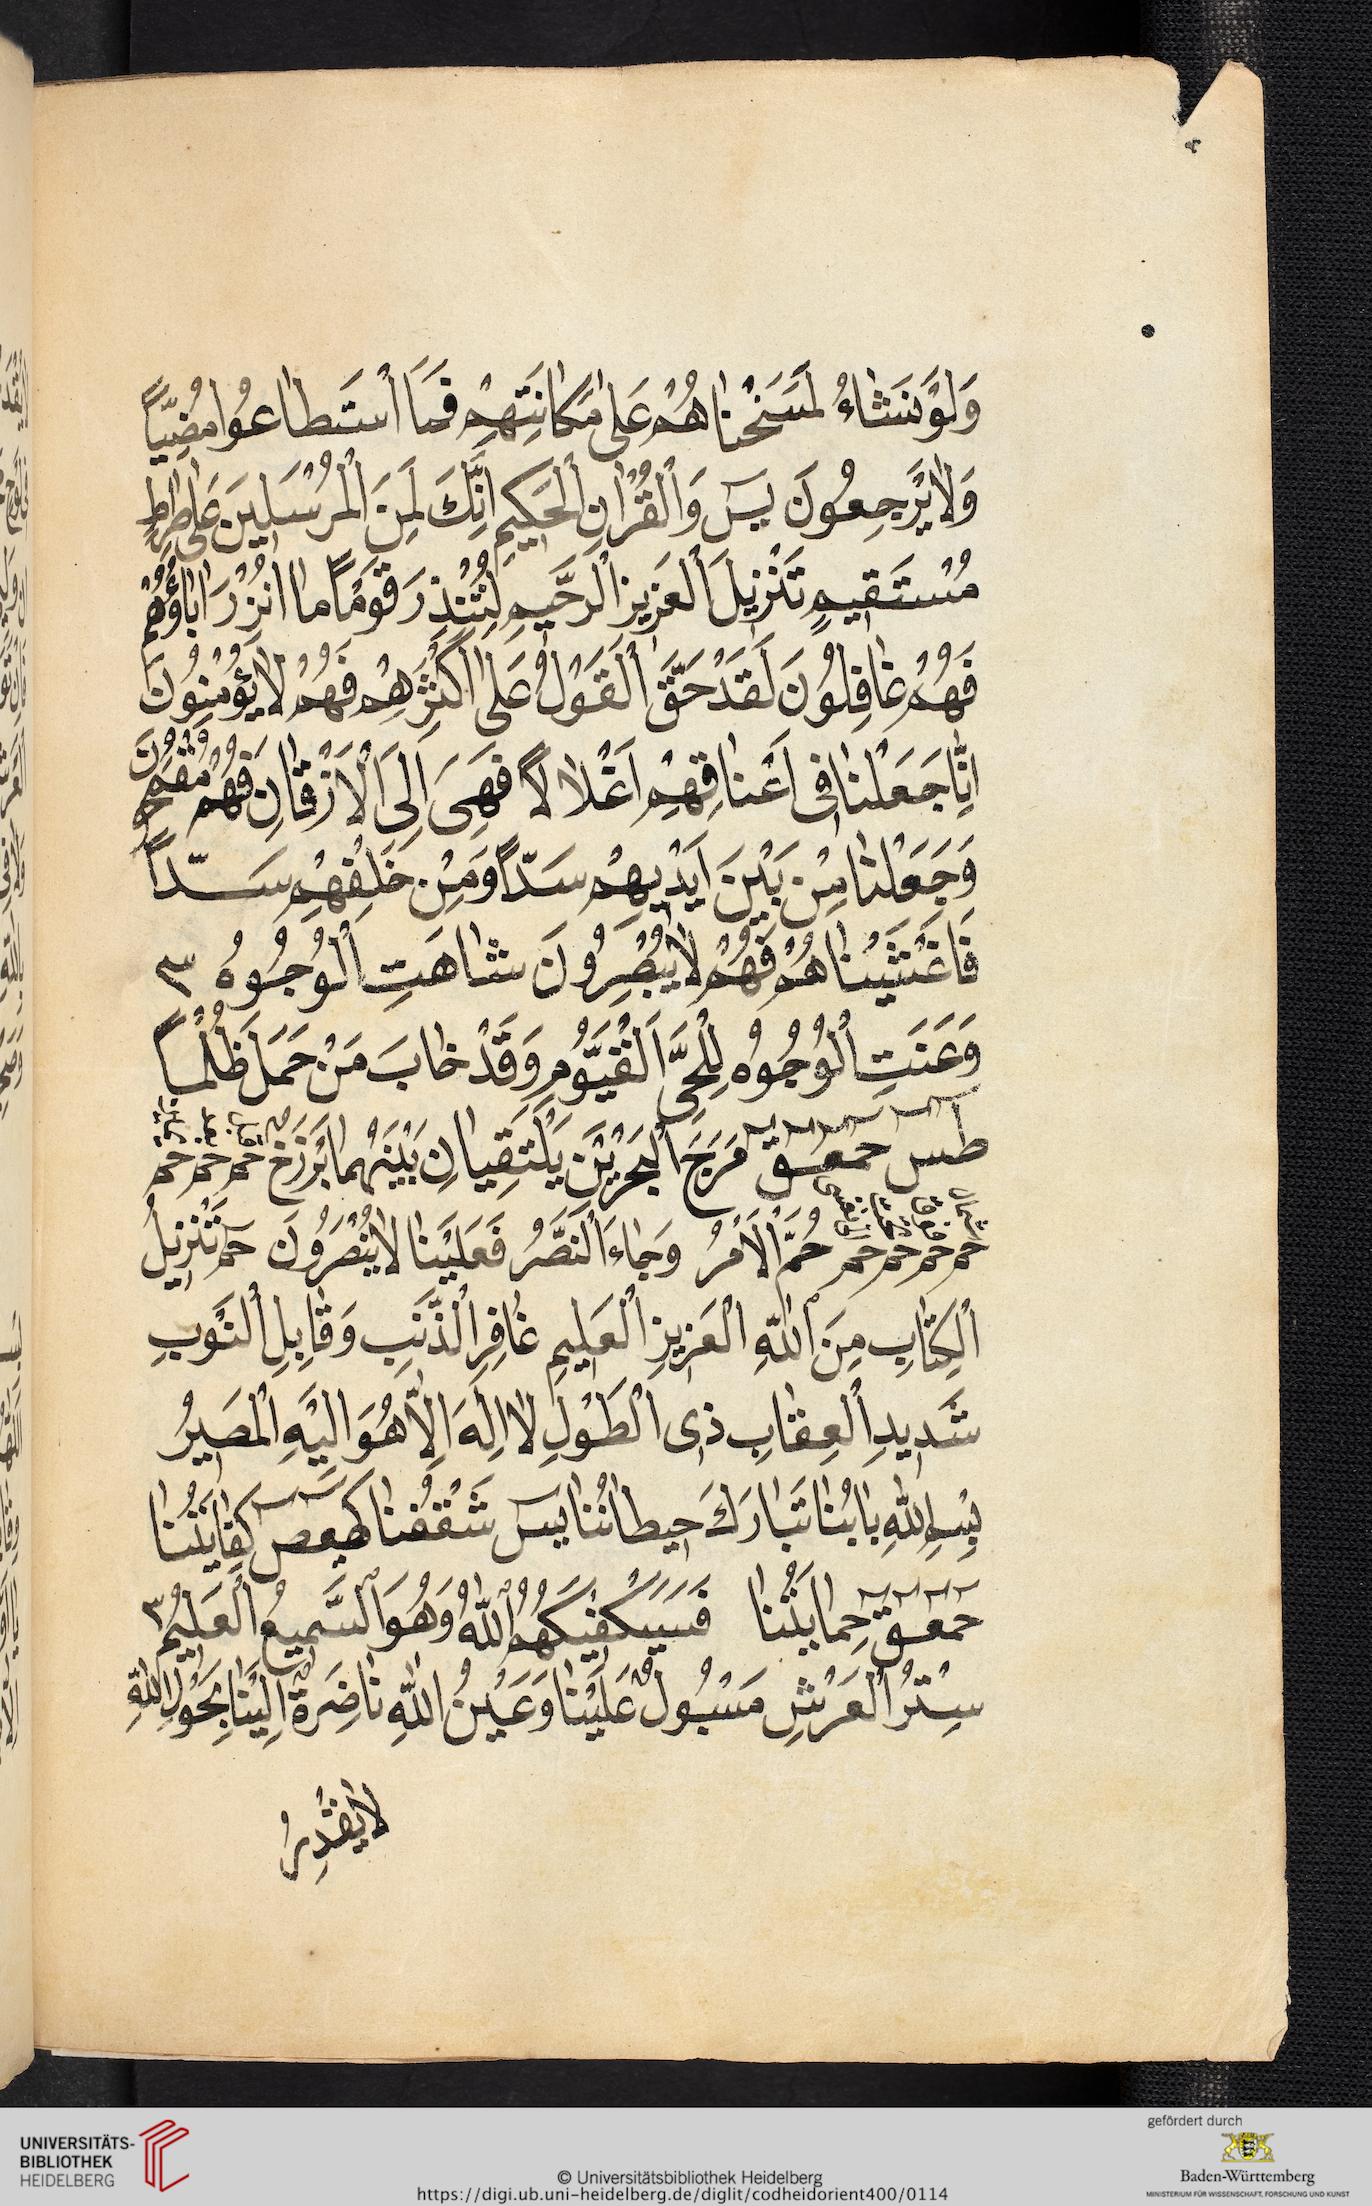 وَلَوْ نَشَاءُ لَمَسَخْنَاهُمْ عَلَى مَكَانَتِهِمْ فَمَا اسْتَطَاعُوا مُضِيًّا
وَلَا يَرْجِعُونَ يس وَالْقُرْآنِ الْحَكِيمِ اِنَّكَ لَمِنَ الْمُرْسَلِينَ عَلَى صِرَاطٍ
مُسْتَقِيمٍ تَنْزِيلَ الْعَزِيزِ الرَّحِيمِ لِتُنْذِرَ قَوْمًا مَا اُنْذِرَ اٰبَاؤُهُمْ
فَهُمْ غَافِلُونَ لَقَدْ حَقَّ الْقَوْلُ عَلَى اَكْثَرِهِمْ فَهُمْ لَا يُؤْمِنُونَ
اِنَّا جَعَلْنَا فِى اَعْنَاقِهِمْ اَغْلَالًا فَهِىَ اِلَى الْاَذْقَانِ فَهُمْ مُقْمَحُونَ
وَجَعَلْنَا مِنْ بَيْنِ اَيْدِيهِمْ سَدًّا وَمِنْ خَلْفِهِمْ سَدًّا
فَاَغْشَيْنَاهُمْ فَهُمْ لَا يُبْصِرُونَ شَاهَتِ الْوُجُوهُ ٣
وَعَنَتِ الْوُجُوهُ لِلْحَىِّ الْقَيُّومِ وَقَدْ خَابَ مَنْ حَمَلَ ظُلْمًا
طس حمعسق مَرَجَ الْبَحْرَيْنِ يَلْتَقِيَانِ بَيْنَهُمَا بَرْزَخٌ حم حم حم
حم حم حم حم حُمَّ الْاَمْرُ وَجَاءَ النَّصْرُ فَعَلَيْنَا لَا يُنْصَرُونَ حم تَنْزِيلُ
الْكِتَابِ مِنَ اللّٰهِ الْعَزِيزِ الْعَلِيمِ غَافِرِ الذَّنْبِ وَقَابِلِ التَّوْبِ
شَدِيدِ الْعِقَابِ ذِى الطَّوْلِ لَا اِلٰهَ اِلَّا هُوَ اِلَيْهِ الْمَصِيرُ
بِسْمِ اللّٰهِ بَابُنَا تَبَارَكَ حِيطَانُنَا يس سَقْفُنَا كهيعص كِفَايَتُنَا
حمعسق حِمَايَتُنَا فَسَيَكْفِيكَهُمُ اللّٰهُ وَهُوَ السَّمِيعُ الْعَلِيمُ ٣
سِتْرُ الْعَرْشِ مَسْبُولٌ عَلَيْنَا وَعَيْنُ اللّٰهِ نَاضِرَةٌ اِلَيْنَا بِحَوْلِ اللّٰهِ
لَا يَقْدِرُ
UNIVERSITÄTS-
BIBLIOTHEK
HEIDELBERG
© Universitätsbibliothek Heidelberg
https://digi.ub.uni-heidelberg.de/diglit/codheidorient400/0114
gefördert durch
Baden-Württemberg
MINISTERIUM FÜR WISSENSCHAFT, FORSCHUNG UND KUNST